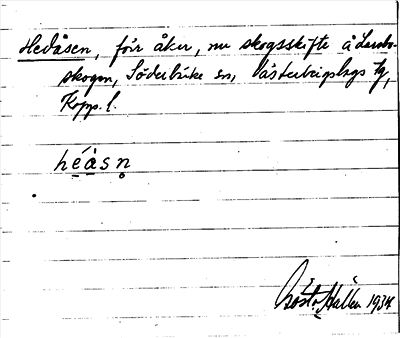 Hedåsen, förr åker, nu skogsskifte å Lernbo-
skogen, Söderbärke sn, Västerbergslags tg,
Kopp. l.
héåsn̥
Gösta Hallén 1934